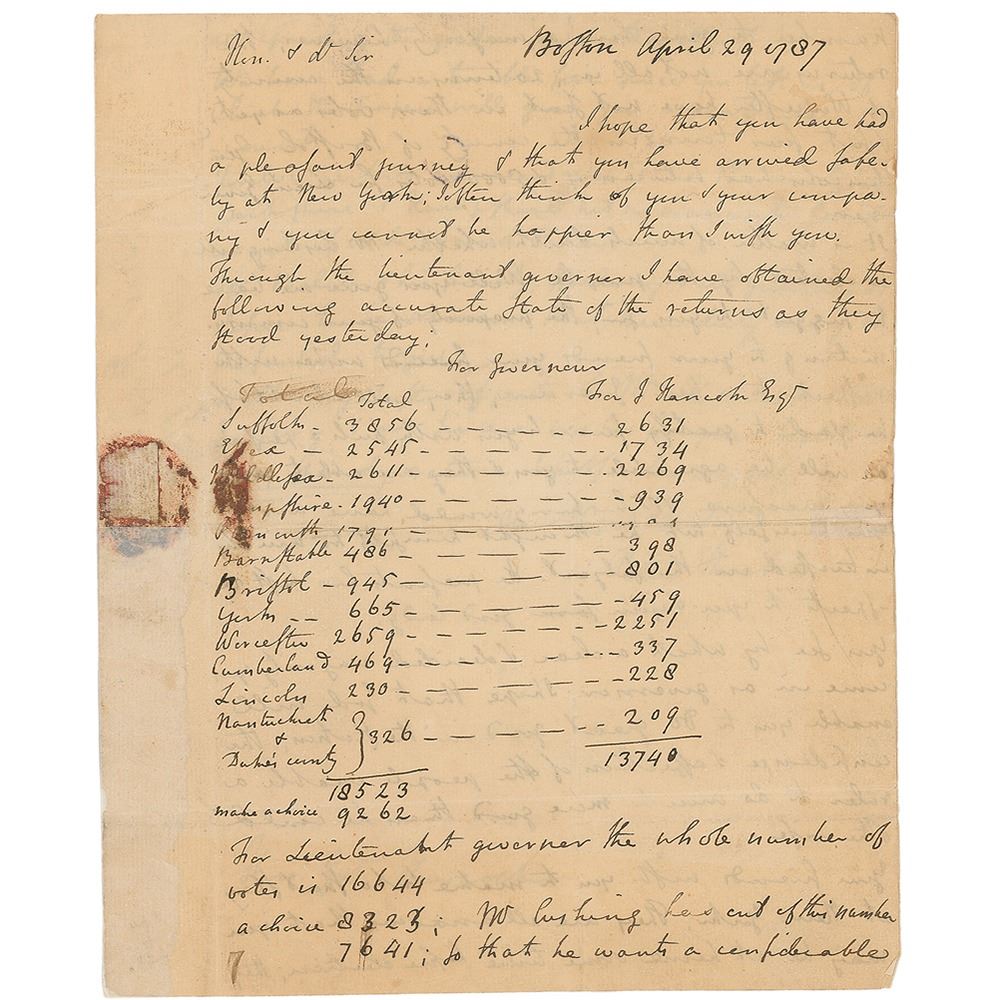 Hon. & dr Sir Boston April 29 1787
I hope that you have had
a pleasant journey & that you have arrived safe-
ly at New York; I often think of you & your compa-
ny & you cannot be happier than I wish you.
Through the lieutenant governer I have obtained the
following accurate State of the returns as they
stood yesterday;
For Governour
Total Total For J Hancock Esqr
Suffolk - 3856 - - - - - - 2631
Essex - 2545 - - - - - - 1734
Middlesex - 2611 - - - - - - 2269
Hampshire - 1940 - - - - - - 939
Plymouth 1791 - - - - - -
Barnstable 486 - - - - - - 398
Bristol - 945 - - - - - - 801
York - - 665 - - - - - - 459
Worcester 2659 - - - - - - 2251
Cumberland 469 - - - - - - 337
Lincoln 230 - - - - - - 228
Nantucket
& } 326 - - - - - - 209
Duke's county
18523 13740
make a choice 9262
For Lieutenant governer the whole number of
votes is 16644
a choice 8323; Mr Cushing has out of this number
7641; so that he wants a considerable
7